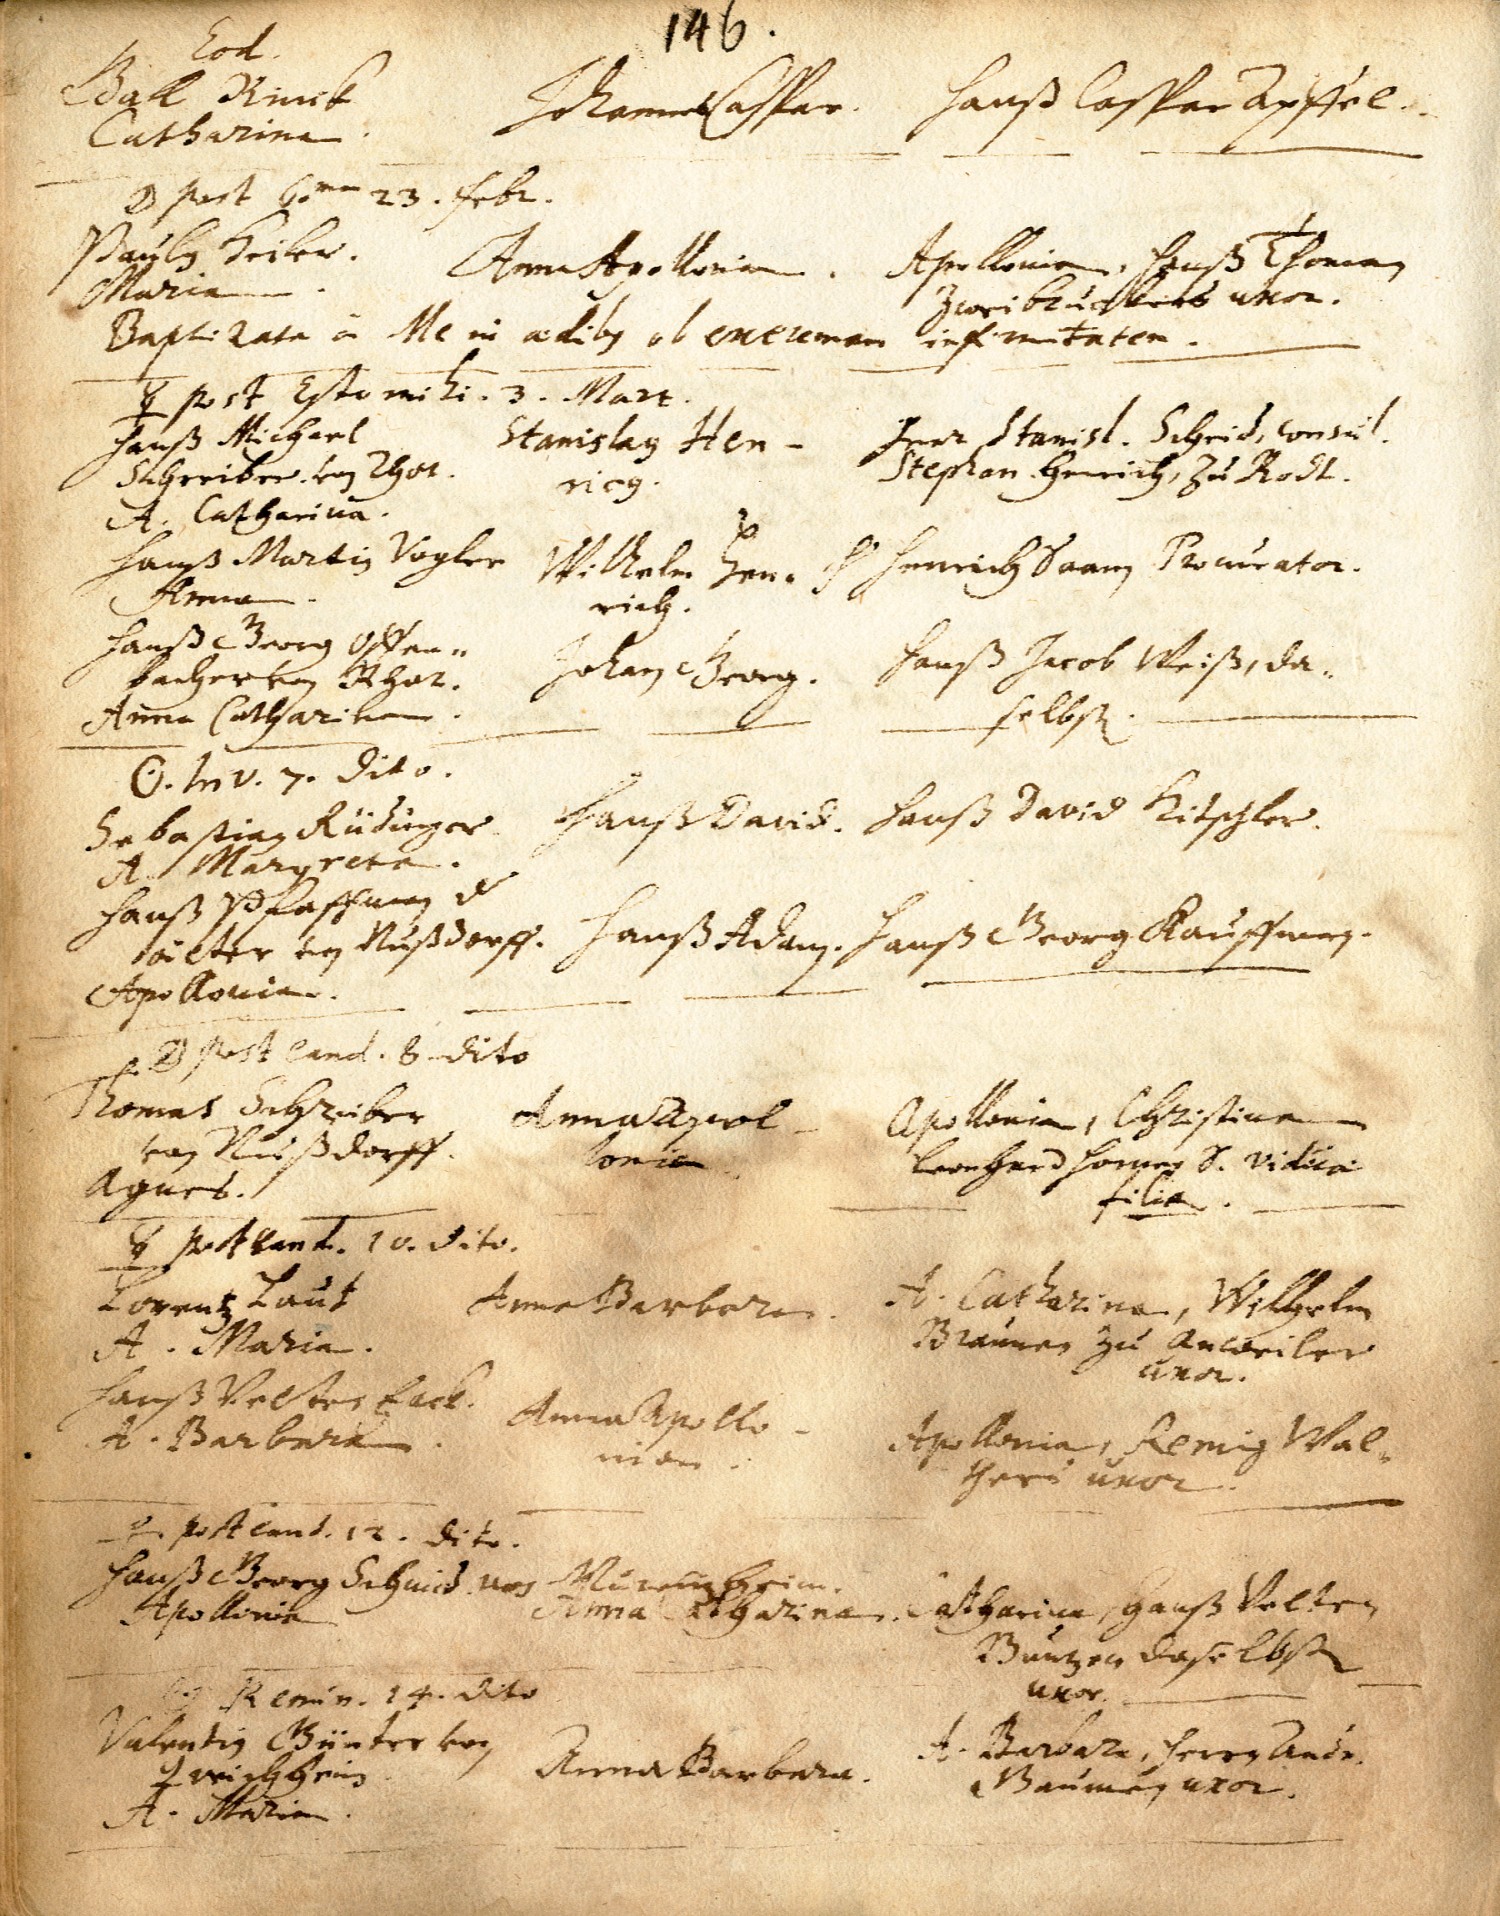 146.
Eod.
Balt Rinck
Catharina.
Johannes Caspar.
Hanß Caspar Apffel.
☽ post 6.mam 23. Febr.
Pauly
Maria.
Anna Apollonia.
Apollonia, Hanß Thoman
Zweibruckers uxor.
Baptizata à Me in ædibus ob extremam infirmitatem.
☿ post Esto mihi. 3. Mart.
Hanß Michael
Schreiber von Rhot.
A. Catharina.
Stanislaus Hen-
ricus.
Herr Stanisl. Schrid, consul.
Stephan Henrich, zu Rodt.
Hanß Martin Vogler
Anna.
Wilhelm Hen-
rich.
Henrich Saam Procurator.
Hanß Georg Offen-
bacher von Rhot.
Anna Catharina.
Johan Georg.
Hanß Jacob Weiß, da-
selbst.
☉. Inv. 7. dito.
Sebastian Rüdinger
A. Margreta.
Hanß David.
Hanß David Kitschler.
Hanß Pfaffman d
älter von Nußdorff.
Apollonia.
Hanß Adam.
Hanß Georg Kauffman.
☽ post eand. 8 dito
Thomas Schreiber
von Nußdorff.
Agnes.
Anna Apol-
lonia
Apollonia, Christina
Leonhard S. vidua
filia.
☿ post eand. 10. dito.
Lorentz Laut
A. Maria.
Anna Barbara.
A. Catharina, Wilhelm
Braunen zu Anweiler
uxor.
Hanß Velten Hack.
A. Barbara.
Anna Apollo-
nia.
Apollonia, Remig Wal-
thers uxor.
♀. post eand. 12. dito.
Hanß Georg Schmid von
Apollonia
Anna Catharina.
Catharina, Hanß Velten
Buntzen daselbst
uxor.
☉ Remin. 14. dito
Valentin Günter von
Queichheim
A. Maria.
Anna Barbara.
A. Barbara, Herrn Andr.
Baumen uxor.